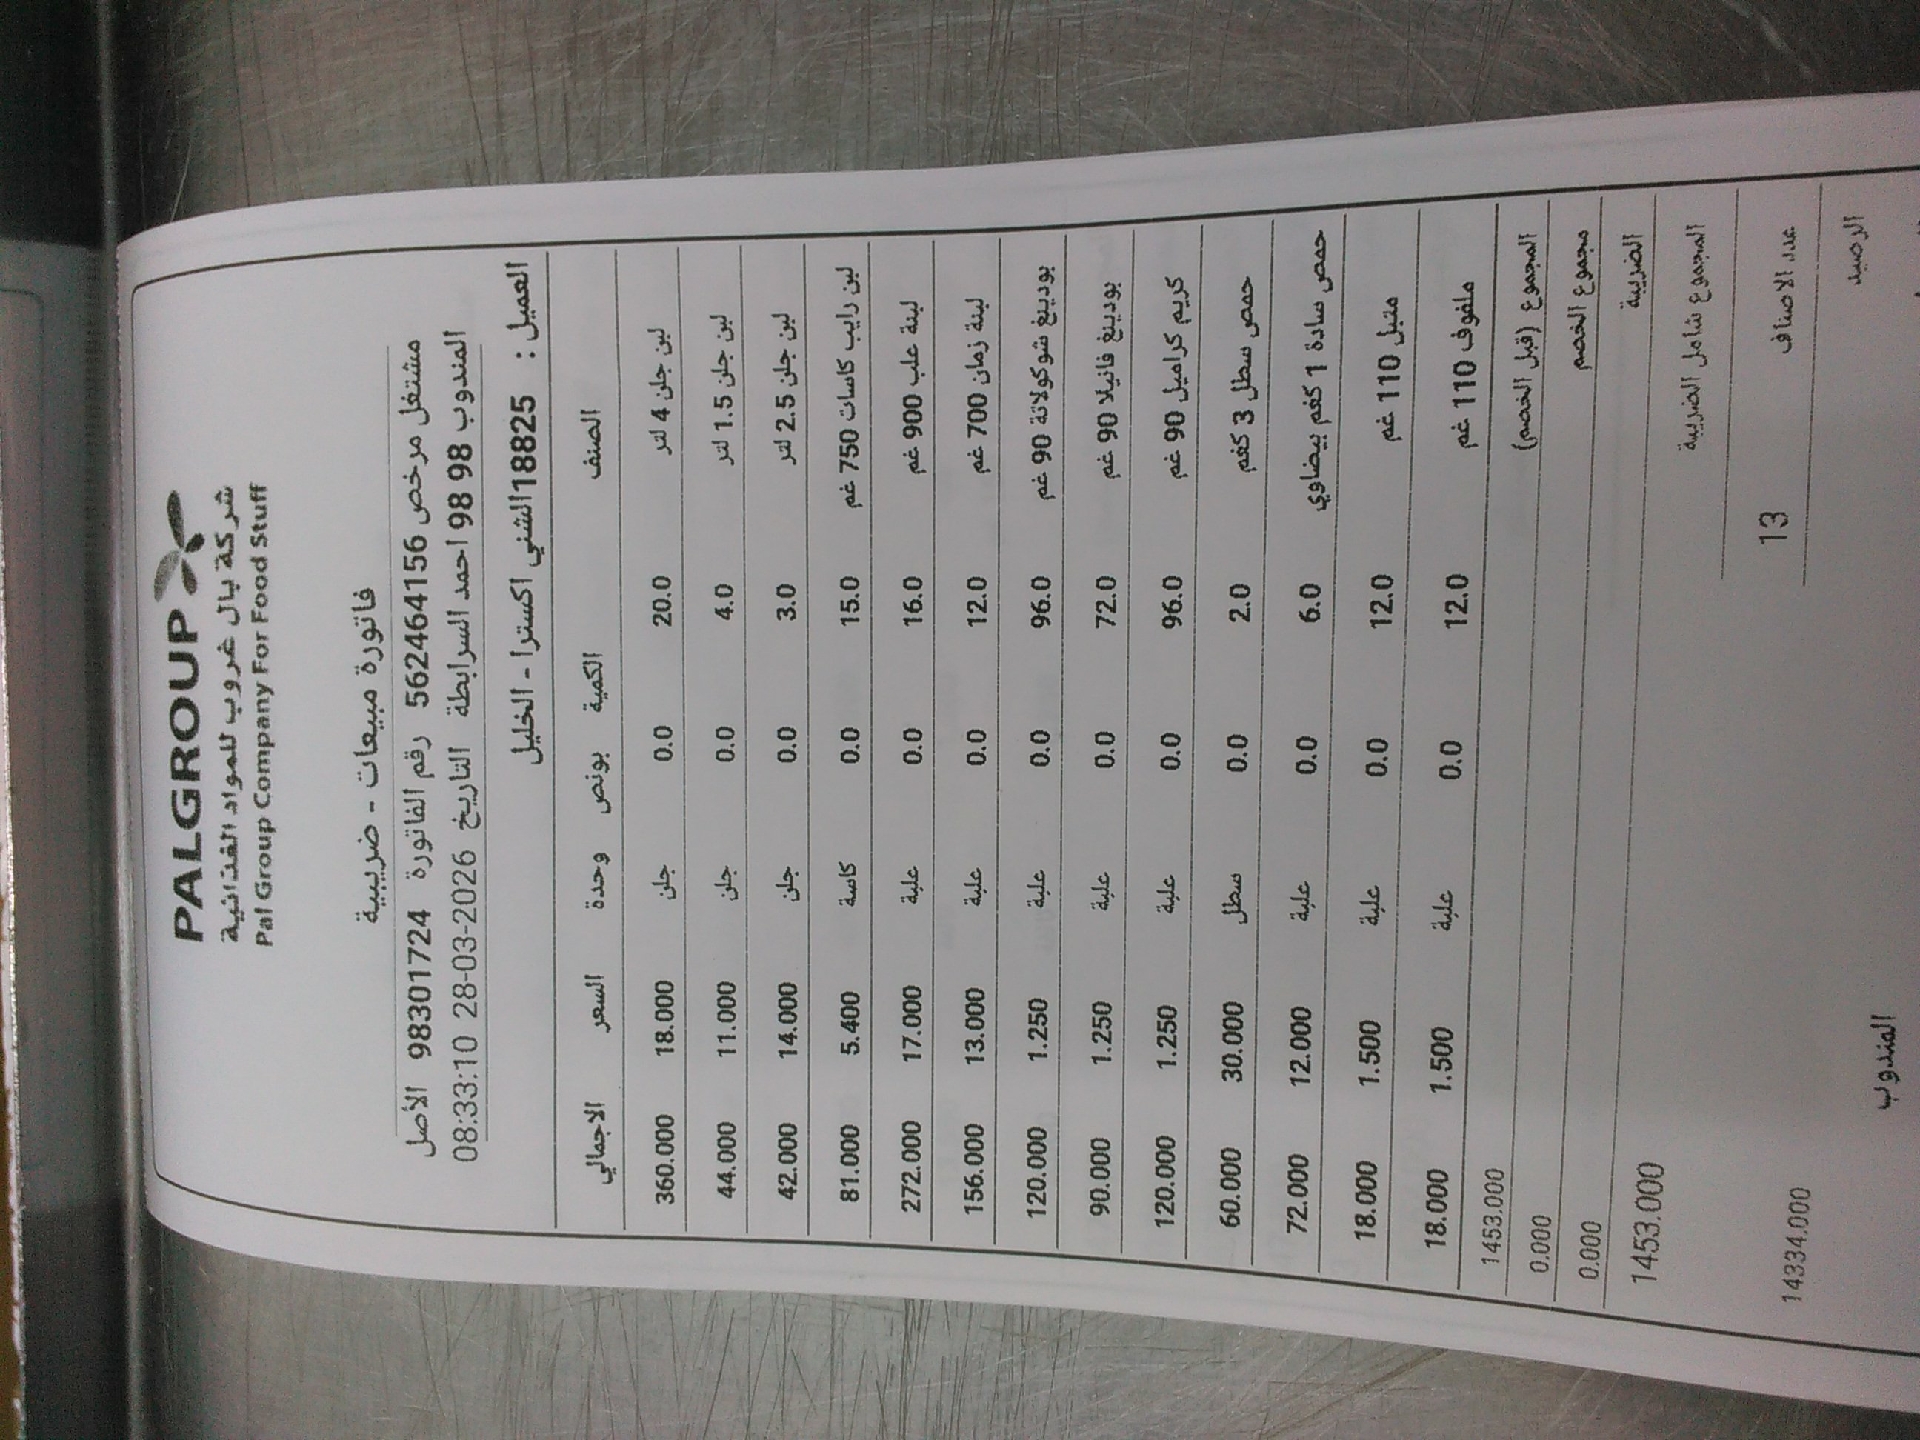 PALGROUP
شركة بال غروب للمواد الغذائية
Pal Group Company For Food Stuff
فاتورة مبيعات - ضريبية
مشتغل مرخص 562464156 رقم الفاتورة 98301724 الأصل
المندوب 98 98 احمد السرابطة التاريخ 2026-03-28 08:33:10
العميل : 18825الشني اكسترا - الخليل
الصنف الكمية بونص وحدة السعر الاجمالي
لبن جلن 4 لتر 20.0 0.0 جلن 18.000 360.000
لبن جلن 1.5 لتر 4.0 0.0 جلن 11.000 44.000
لبن جلن 2.5 لتر 3.0 0.0 جلن 14.000 42.000
لبن رايب كاسات 750 غم 15.0 0.0 كاسة 5.400 81.000
لبنة علب 900 غم 16.0 0.0 علبة 17.000 272.000
لبنة زمان 700 غم 12.0 0.0 علبة 13.000 156.000
بودينغ شوكولاتة 90 غم 96.0 0.0 علبة 1.250 120.000
بودينغ فانيلا 90 غم 72.0 0.0 علبة 1.250 90.000
كريم كراميل 90 غم 96.0 0.0 علبة 1.250 120.000
حمص سطل 3 كغم 2.0 0.0 سطل 30.000 60.000
حمص سادة 1 كغم بيضاوي 6.0 0.0 علبة 12.000 72.000
متبل 110 غم 12.0 0.0 علبة 1.500 18.000
ملفوف 110 غم 12.0 0.0 علبة 1.500 18.000
المجموع (قبل الخصم) 1453.000
مجموع الخصم 0.000
الضريبة 0.000
المجموع شامل الضريبة 1453.000
عدد الاصناف 13
الرصيد 14334.000
المندوب